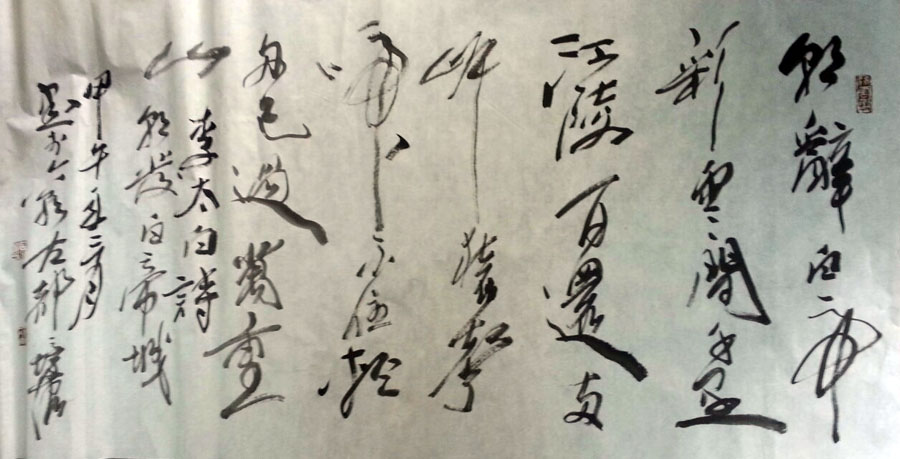 朝辭白帝
彩雲間千里
江陵一日還兩
岸猿聲
啼不住輕
舟已過萬重
山
李太白詩
朝發白帝城
甲午年三月
書於六朝古都